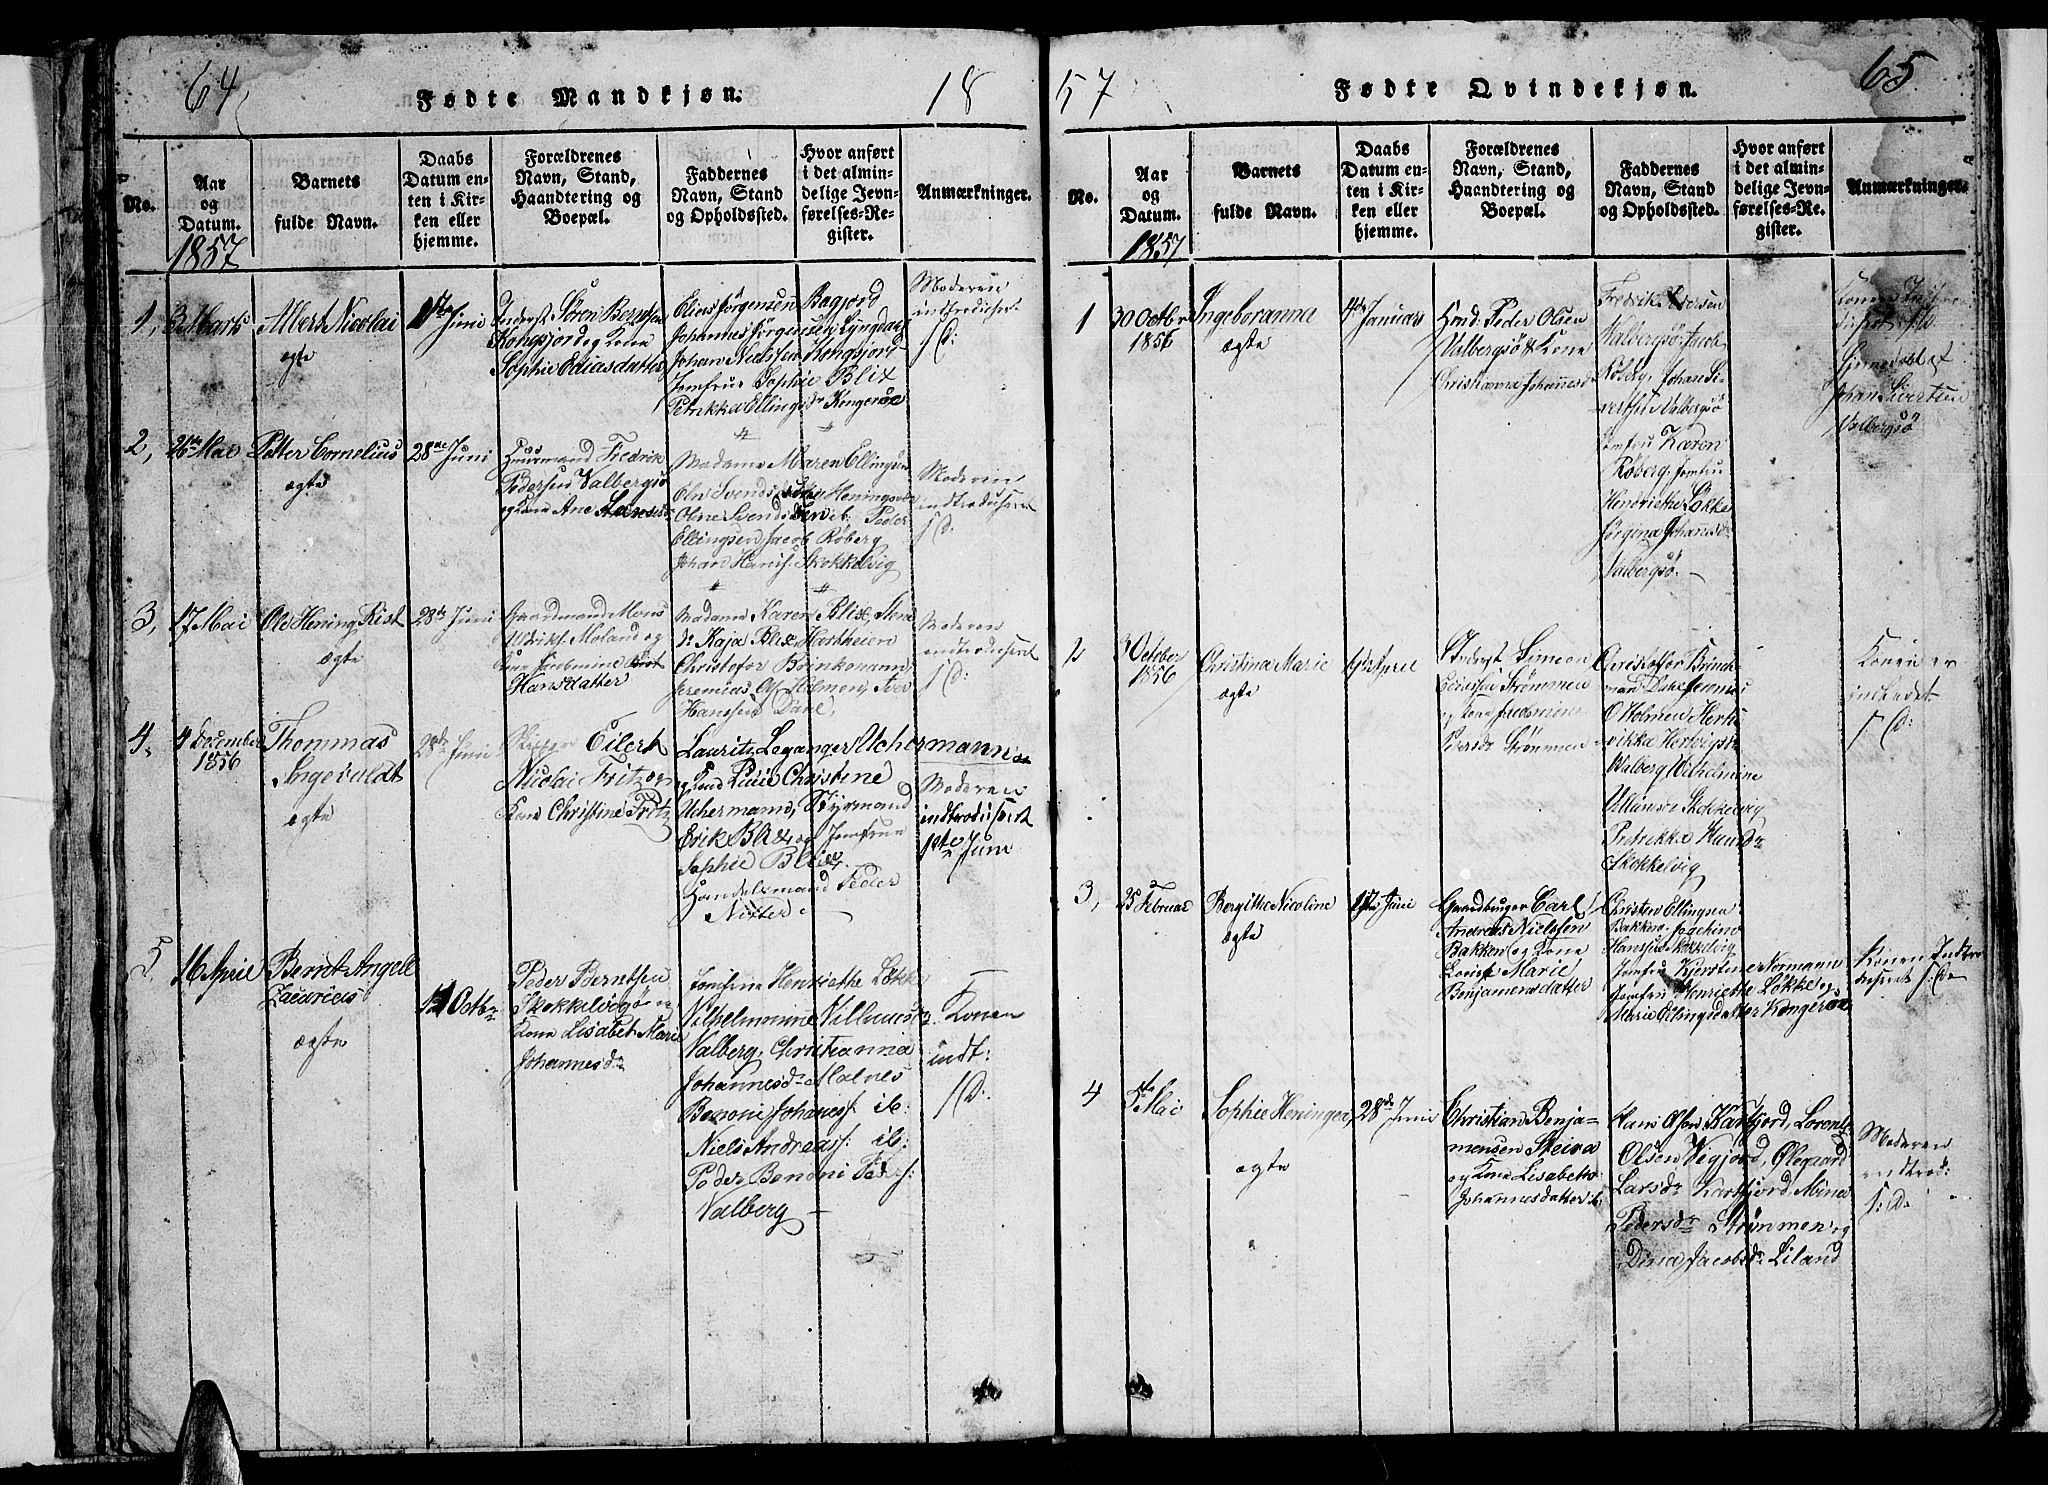 64
Fødte Mandkjøn.
18
No.
Aar
og
Datum.
1857
Barnets
fulde Navn.
Daabs
Datum en-
ten i Kir-
ken eller
hjemme.
Forældrenes
Navn, Stand,
Haandtering og
Boepæl.
Faddernes
Navn, Stand
og Opholdssted.
Hvor anført
i det almin-
delige Jevn-
førelses-Re-
gister.
Anmærkninger.
1,
3 Marts
Albert Nicolai
ægte
1ste Juni
Søren Berntsen
Kongsjord og Kone
Sophie Eliasdatter
Elias Jørgensen Bogjord
Johannes Jørgensen Lyngdal
Johan Nielsen Kongsjord
Jomfrue Sophie Blix
Petrikka Ellingsdr Kongeroe
Moderen
indtroduseret
s. D:
2,
26de Mai
Petter Cornelius
ægte
28de Juni
Huusmand Fredrik
Pedersen Valbergsø
og Kone Ane Larsdr
Madame Maren Ellingsen
Elen Svendsdr Heningsvær
Oline Svendsdr ib. Peder
Ellingsen Jacob Røberg
Johan Hansf. Skokkelvig
Moderen
indtroduseret
s. D:
3,
17 Mai
Ole Hening Rist
ægte
28de Juni
Gaardmand Mons
Ulrikf. Moland og
Kone Jacobmine Rist
Hansdatter
Madame Karen Blix, Steine
dr Kaja Blix Horkheien
Christofor Brinkmann,
Jeremias Of Holmen, Iver
Hanssen Dale,
Moderen
indtroduseret
s. D:
4,
4 December
1856
Thommas
Ingevaldt
ægte
28de Juni
Skipper Eilert
Nicolai Fritz og
Kone Christine Fritz
Lauritz Leganger Uchermann
og Kone Lucie Christine
Uchermann, Styrmand
Erik Blix og Jomfrue
Sophie Blix,
Handelsmand Peder
Nitter
Moderen
indtroduseret
1ste Juni
5.
16 April
Bernt Angell
Zacarias
ægte
12 Octbr
Peder Berntsen
Skokkelvigø og
Kone Lisabet Marie
Johannesdr
Jomfrue Henriethe Løkke
Vilhelmmine Villumsdr
Valberg, Christianna
Johannesdr Malnes
Benoni Johanesf. ib:
Niels Andreasf: ib:
Peder Benoni Pedf:
Valberg
Konen
indt:
s. D:
57
Fødte Qvindekjøn.
65
No.
Aar
og
Datum.
1857
Barnets
fulde Navn.
Daabs
Datum en-
ten i Kir-
ken eller
hjemme.
Forældrenes
Navn, Stand,
Haandtering og
Boepæl.
Faddernes
Navn, Stand
og Opholdssted.
Hvor anført
i det almin-
delige Jevn-
førelses-Re-
gister.
Anmærkninger.
1
30 Octbr
1856
Ingeboranna
ægte
4de Januar
Hmd: Peder Olsen
Valbergsø & Kone
Christianna Johannesdr
Fredrik Pedersen
Valbergsø Jacob
Røberg, Johan Si-
vertsen Valbergsø
Jomfru Karen
Røberg, Jomfru
Henriethe Løkke
Jørgina Johansdr
Valbergsø.
Konen Intro-
duseret s. D:
Hjemedøbt af
Johan Sivertsen
Valbergsø
2
3 October
1856
Christina Marie
ægte
April
Simeon
Strømmen
og Kone
Pedersdr Strømmen
Christoffer Brinch-
man Dale Jeremias
O Holmen Hert-
vikka Hertvigsdr
Valberg Wilhelmine
Villumsdr Skokkelvig
Petrikka Hansdr
Skokkelvig
Konen er
indledet
s. D:
3,
25 Februar
Bergitte Nicoline
ægte
1ste Juni
Gaardbruger Carl
Andreas Nielssen
Bakken og Kone
Lovise Marie
Benjamensdatter
Christen Ellingsen
Bakken, Joachim
Hansen Skokkelvig
Jomfru Kjerstine Normann
Jomfru Henriette Løkke og
Marie Ellingsdatter Kongeroe
Konen Indtro-
duseret s. D.
4
5te Mai
Sophie Heningea,
ægte
28de Juni
Christian Benja-
mensen Steira
og Kone Lisabeth
Johannesdatter ib:
Hans Olsen Kartfjord, Lorents
Olsen Vigjord, Ølegaard
Larsdr Kartfjord, Mines
Pedersdr Strømmen, og
Dina Jacobsdr Liland
Moderen
indtrod:
s: D.